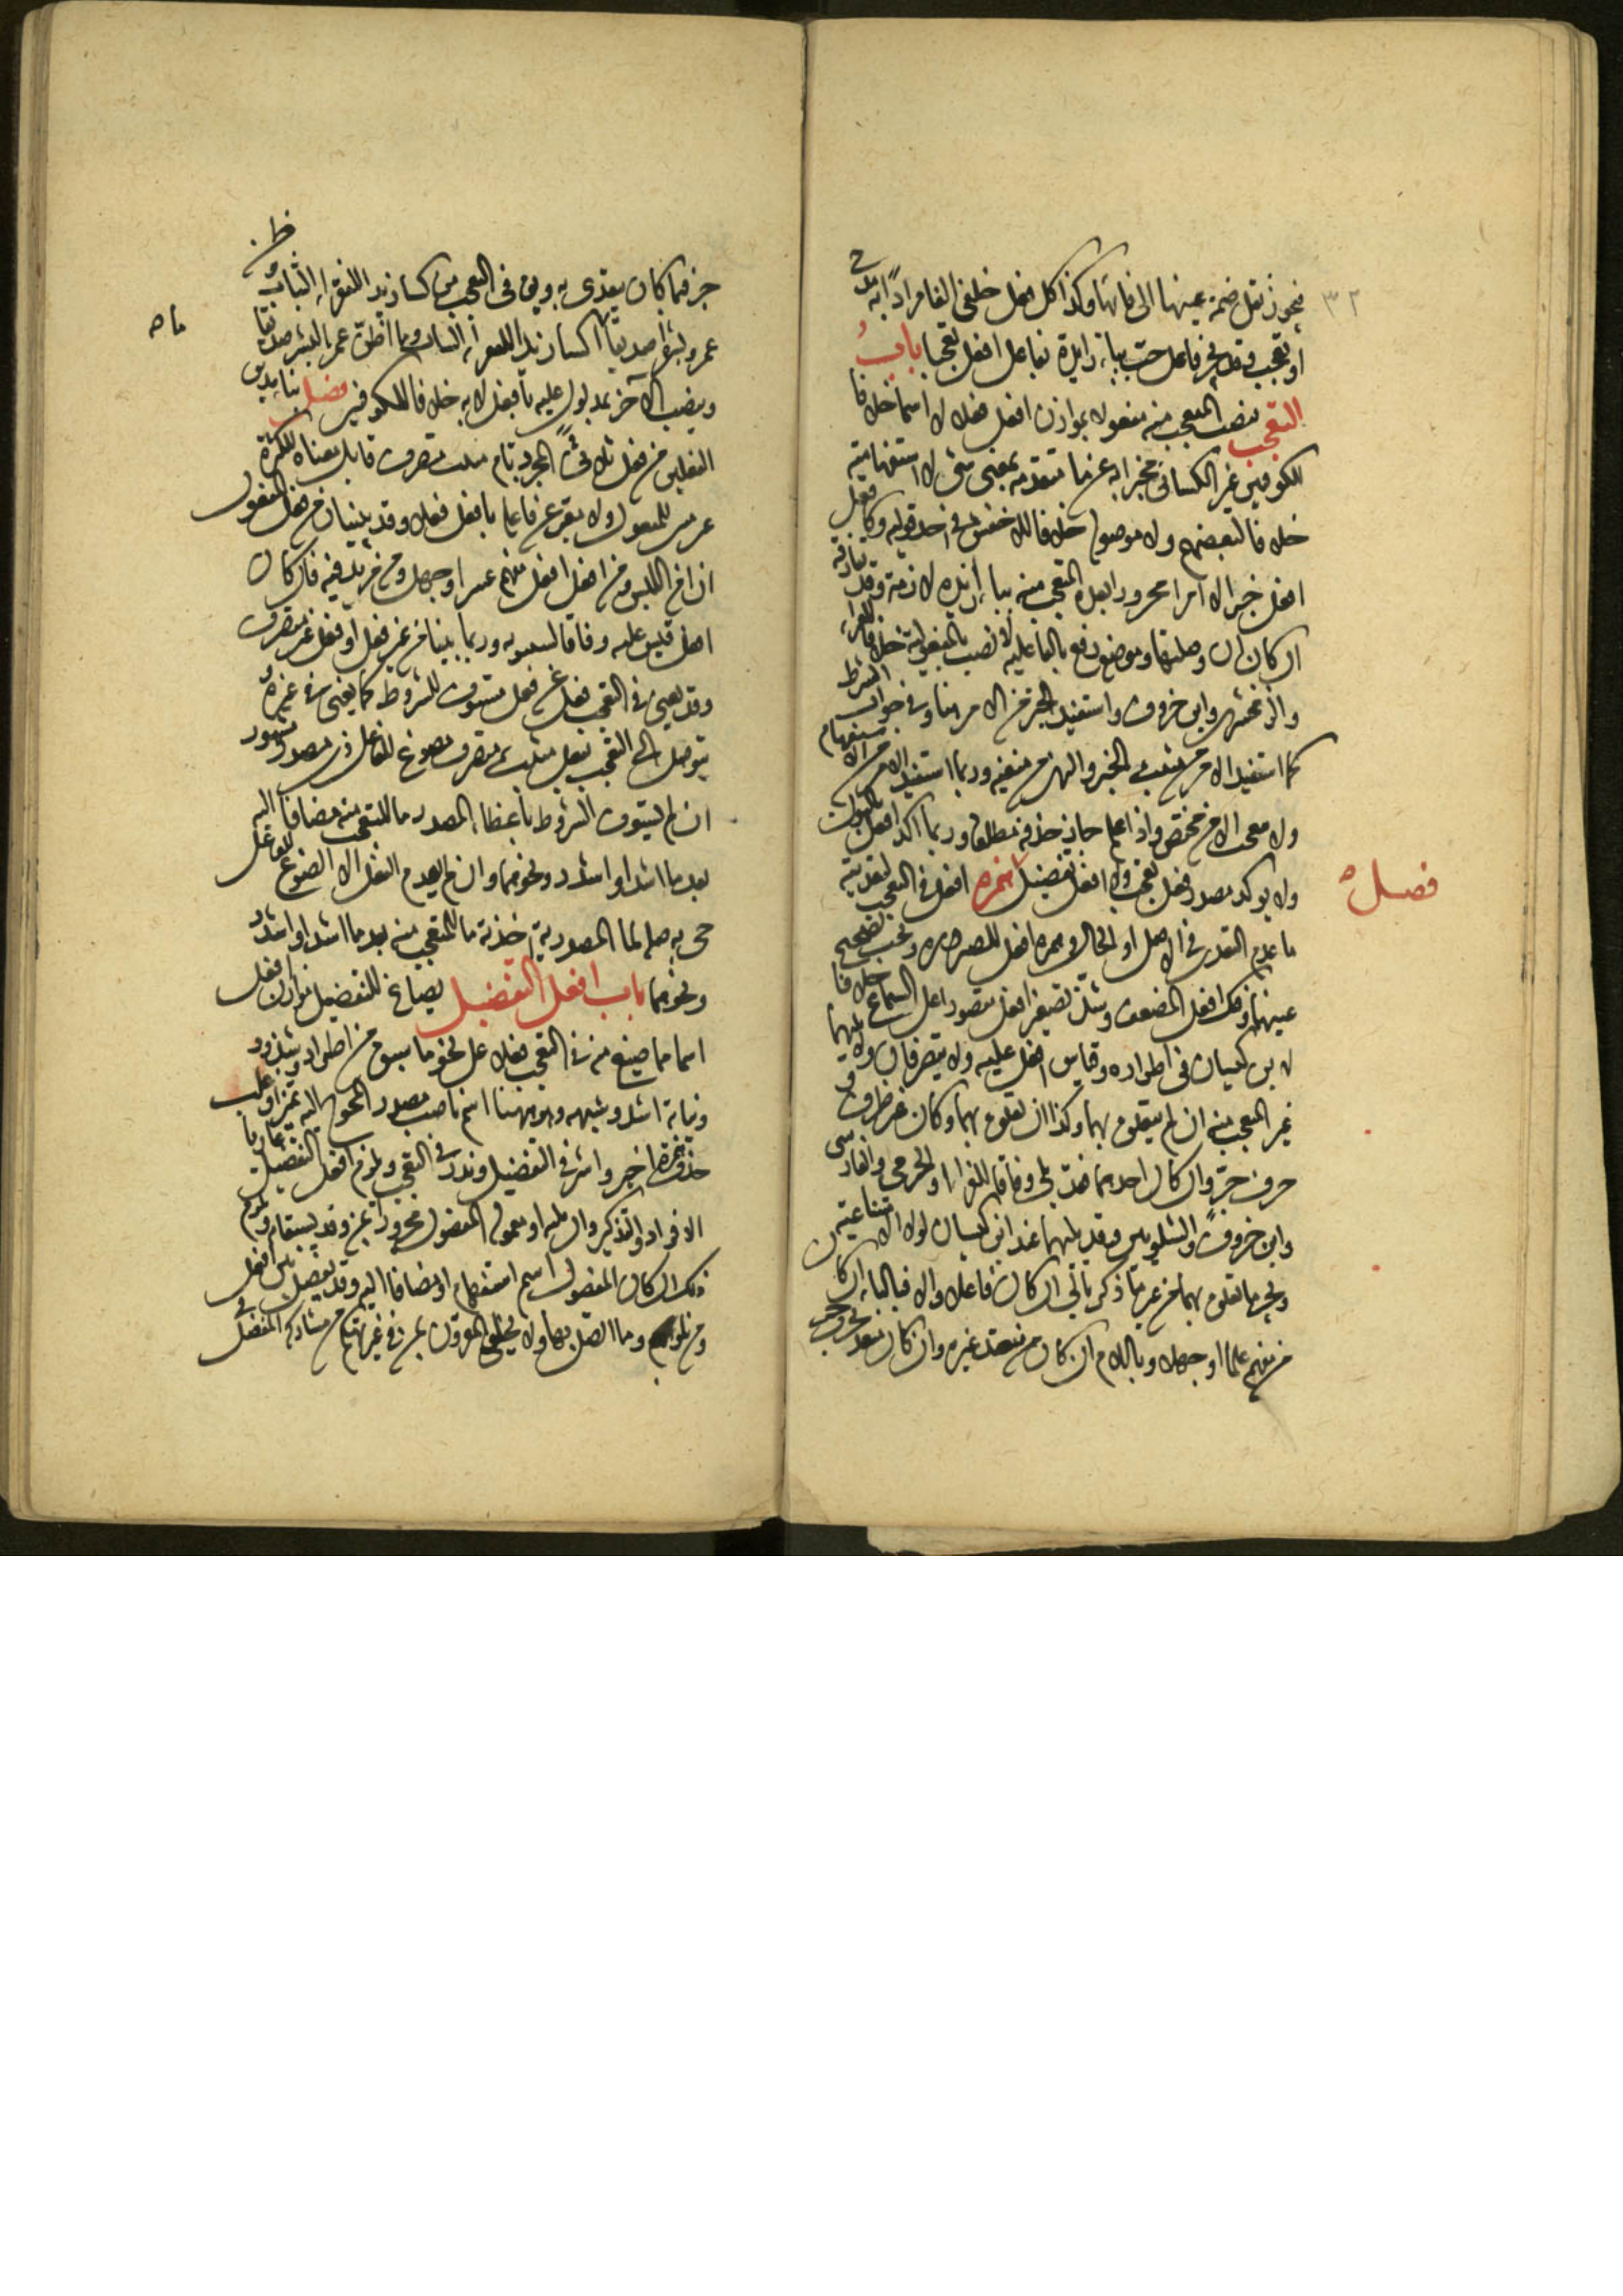 ٣٢
فيجوز نقل ضمة عينها الى فائها وكذا كل فعل حلقى الفا مرادًا به مدح
او تعجب وقد يجر فاعل حبّ بباء زايدة تشبيها بفاعل افعل تعجبا باب
التعجب ينصب المتعجب منه مفعولا بموازن افعل فعلا لا اسما خلافا
للكوفيين غير الكسائى مخبرا به عن ما متقدمة بمعنى شئ لا استفهامية
خلافا لبعضهم ولا موصولة خلافا للاخفش فى احد قوليه وكافعل
افعل خبرا لا امرا مجرورا بعده المتعجب منه بباء زايدة لازمة وقد تفارقه
ان كان ان وصلتها وموضعه رفع بالفاعلية لا نصب بالمفعولية خلافا للفراء
والزمخشرى وابن خروف واستفيد الخبر من الامر هنا وفى جواب الشرط
كما استفيد الامر من مثبت الخبر والنهى من منفيه وربما استفيد الامر من الاستفهام
ولا يتعجب الا من مختص واذا علم جاز حذفه مطلقا وربما اكد افعل بالنون
ولا يوكد مصدر فعل تعجب ولا افعل تفضيل
فصل
همزة افعل فى التعجب لتعدية
ما عدم التعدى فى الاصل او الحال وهمزة افعل للصيرورة ويجب تصحيح
عينهما وفك افعل المضعف وشذ تصغير افعل مقصورا على السماع خلافا
لابن كيسان فى اطراده وقياس افعل عليه ولا يتصرفان ولا يليهما
غير المتعجب منه ان لم يتعلق بهما وكذا ان تعلق بهما وكان غير ظرف و
حرف جر وان كان احدهما فقد يلى وفاقا للفراء والجرمى والفارسى
وابن خروف والشلوبين وقد يليهما عند ابن كيسان لولا الامتناعية
ويجر ما تعلق بهما من غير ما ذكر بالى ان كان فاعلا والا فبالباء ان كان
من مفهم علما او جهلا وباللام ان كان من متعد غيره وان كان من متعد بحرف جر
ظ
جر فبما كان يتعدى به ويقال فى التعجب من كسا زيد الفقراء الثياب
عمرو بشرا صديقا ما اكسا زيدا للفقراء الثياب وما اظن عمرا لبشر صديقا
ماه
وينصب الآخر بمدلول عليه بأفعل لا به خلافا للكوفيين فصل بناء هذين
الفعلين من فعل ثلاثى مجرد تام مثبت متصرف قابل معناه للكثرة
غير مبنى للمفعول ولا معبر عن فاعله بافعل فعلاء وقد يبنيان من فعل المفعول
ان امن اللبس ومن افعل افعل مفهم عسر او جهل ومن مزيد فيه فان كان
افعل قيس عليه وفاقا لسيبويه وربما بنيا من غير فعل او فعل غير متصرف
وقد يغنى فى التعجب فعل عن فعل مستوف للشروط كما يغنى فى غيره
يتوصل الى التعجب بفعل مثبت متصرف مصوغ للفاعل ذى مصدر مشهور
ان لم يستوف الشروط باعطاء المصدر ما للمتعجب منه مضافا اليه
بعد ما اشد او اشدد ونحوهما وان لم يعدم الفعل الا الصوغ للفاعل
جى به صلة لما المصدرية آخذة ما للمتعجب منه بعد ما اشد او اشدد
ونحوهما باب افعل التفضيل يصاغ للتفضيل موازن افعل
اسما مما صيغ منه فى التعجب فعلا على نحو ما سبق من اطراد وشذوذ
ونيابة اشد وشبهه وهو هنا اسم ناصب مصدر المحوج اليه تمييزا وغلب
حذف همزة اخير واشر فى التفضيل وندر فى التعجب ويلزم افعل التفضيل عاريا
الافراد والتذكير وان يليه او معموله المفضول مجرورا بمن وقد يسبقانه ويلزم
ذلك ان كان المفضول اسم استفهام او مضافا اليه وقد يفصل بين افعل
ومن بلو وما اتصل بها ولا يخلو المقرون بمن فى غير تهكم من مشاركة المفضل فى